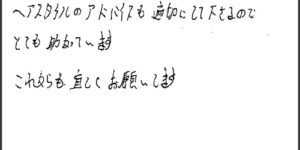 ヘアスタイルのアドバイスも適切にして下さるので
とても助かっています
これからも宜しくお願いします